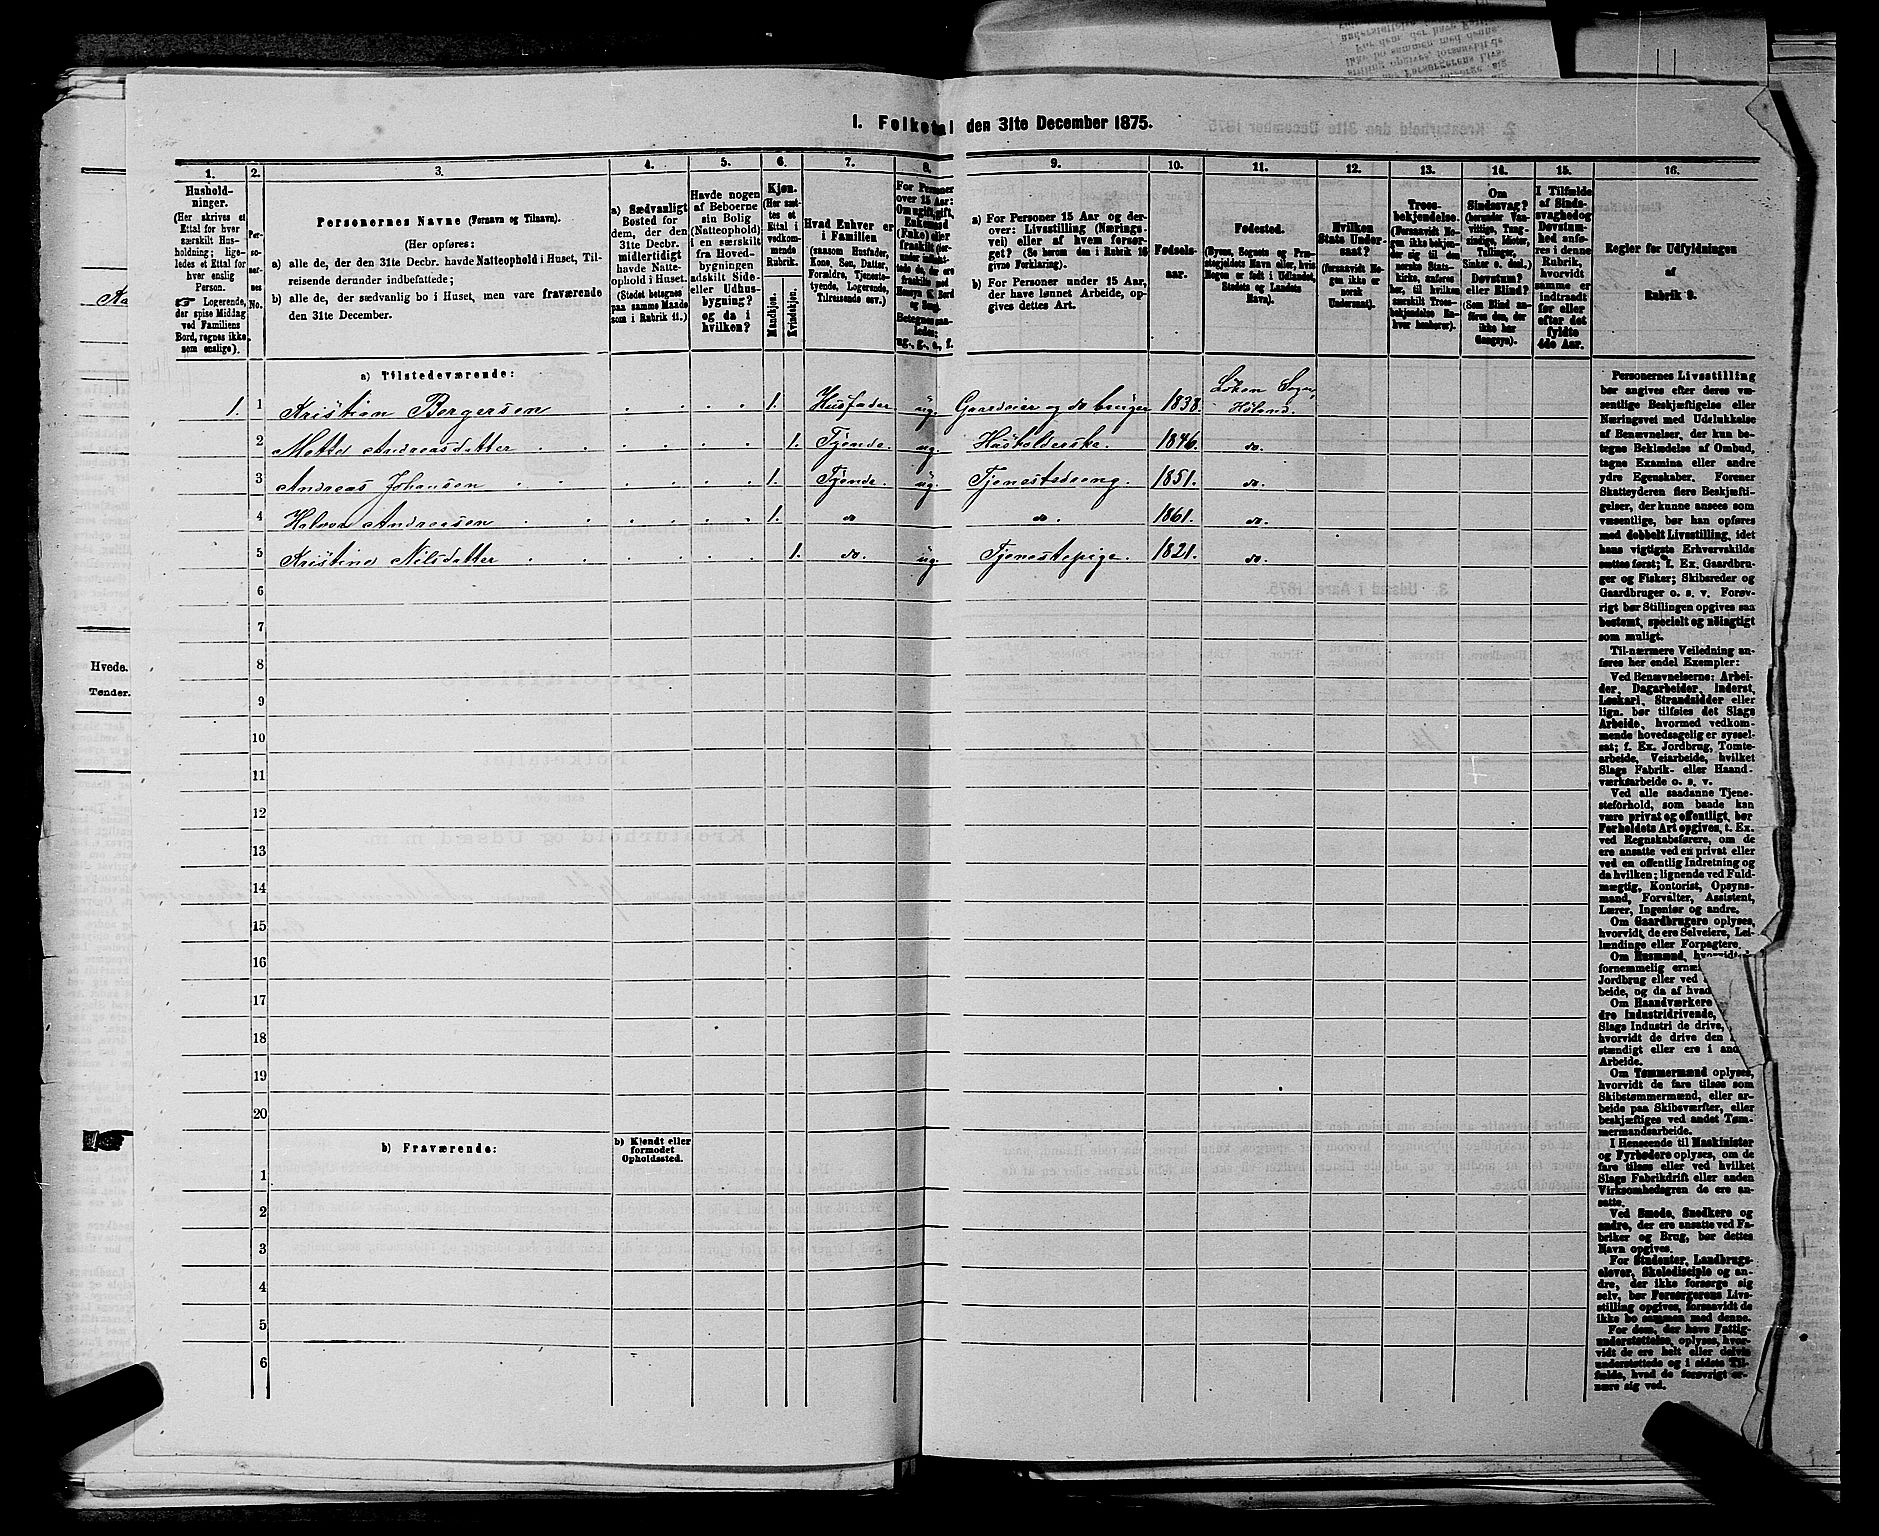 1. Folketal den 31te December 1875.
1. 2. 3. 4. 5. 6. 7. 8. 9. 10. 11. 12. 13. 14. 15. 16.
Hushold-
ninger.
(Her skrives et
Ettal for hver
særskilt Hus-
holdning; lige-
ledes et Ettal for
hver enslig
Person.
Logerende,
der spise Middag
ved Familiens
Bord, regnes ikke
som enslige).
Per-
so-
ner-
nes
No.
Personernes Navne (Fornavn og Tilnavn).
(Her opføres:
a) alle de, der den 31te Decbr. havde Natteophold i Huset, Til-
reisende derunder indbefattede;
b) alle de, der sædvanlig bo i Huset, men vare fraværende
den 31te December.
a) Sædvanligt
Bosted for
dem, der den
31te Decbr.
midlertidigt
havde Natte-
ophold i Huset.
(Stedet betegnes
paa samme Maade
som i Rubrik 11.)
Havde nogen
af Beboerne
sin Bolig
(Natteophold)
i en særskilt
fra Hoved-
bygningen
adskilt Side-
eller Udhus-
bygning?
og da i
hvilken?
Kjøn.
(Her sæt-
tes et
Ettal i
vedkom-
mende
Rubrik.
Mandkjøn.
Kvindekjøn.
Hvad Enhver er
i Familien
(saasom Husfader,
Kone, Søn, Datter,
Forældre, Tjeneste-
tyende, Logerende,
Tilreisende osv.)
For Personer
over 15 Aar:
Om ugift, gift,
Enkemand
(Enke) eller
fraskilt
Betegnes saa-
ledes:
ug., g., e., f.
a) For Personer 15 Aar og der-
over: Livsstilling (Nærings-
vei) eller af hvem forsør-
get? (Se herom den i Rubrik 16
givne Forklaring).
b) For Personer under 15 Aar,
der have lønnet Arbeide, op-
gives dettes Art.
Fødsels-
aar.
Fødested.
(Byens, Sognets og Præ-
stegjeldets Navn eller, hvis
Nogen er født i Udlandet,
Stedets og Landets
Navn).
Hvilken
Stats Under-
saat?
(forsaavidt No-
gen ikke er
norsk
Undersaat).
Troes-
bekjendelse.
(Forsaavidt No-
gen ikke bekjen-
der sig til den
norske Stats-
kirke, anføres
her, til hvilken
særskilt Troes-
bekjendelse En-
hver henhører).
Om
Sindssvag?
(herunder Van-
vittige, Tung-
sindige, Idioter,
Tullinger,
Sinker o. desl.)
Døvstum?
eller Blind?
(Som Blind an-
føres den, der
ikke har
Gangsyn).
I Tilfælde
af Sinds-
svaghed og
Døvstum-
hed anfø-
res i denne
Rubrik,
hvorvidt
samme er
indtraadt
før eller
efter det
fyldte
4de Aar.
Regler for Udfyldningen
af
Rubrik 9.
a) Tilstedeværende:
1. 1 Kristian Borgersen 1. Husfader ug. Gaardeier og do bruger 1838. Løken Sogn, Høland.
2 Mette Andreasdatter 1. Tjende. ug. Husholderske. 1846. do.
3 Andreas Johansen 1. Tjende. ug. Tjenestedreng. 1851. do.
4 Halvor Andreasen 1. do do. 1861. do.
5 Kristine Nilsdatter 1. do. ug. Tjenestepige. 1821. do.
6
7
8
9
10
11
12
13
14
15
16
17
18
19
20
b) Fraværende:
b) Kjendt eller
formodet
Opholdssted.
1
2
3
4
5
6
Personernes Livsstilling
bør angives efter deres væ-
sentlige Beskjæftigelse eller
Næringsvei med Udelukkelse
af Benævnelser, der kun be-
tegne Beklædelse af Ombud,
tagne Examina eller andre
ydre Egenskaber. Forener
Skatteyderen flere Beskjæfti-
gelser, der kunne ansees som
væsentlige, bør han opføres
med dobbelt Livsstilling, idet
hans vigtigste Erhvervskilde
sættes først; f. Ex. Gaardbru-
ger og Fisker; Skibsreder og
Gaardbruger o. s. v. Forøv-
rigt bør Stillingen opgives saa
bestemt, specielt og nøiagtigt
som muligt.
Til nærmere Veiledning an-
føres her endel Exempler:
Ved Benævnelserne: Arbei-
der, Dagarbeider, Inderst,
Løskarl, Strandsidder eller
lign. bør tilføies det Slags
Arbeide, hvormed vedkom-
mende hovedsagelig er syssel-
sat; f. Ex. Jordbrug, Tomte-
arbeide, Veiarbeide, hvilket
Slags Fabrik- eller Haand-
værksarbeide o. s. v.
Ved alle saadanne Tjene-
steforhold, som baade kan
være privat og offentligt, bør
Forholdets Art opgives, t. Ex.
ved Regnskabsførere, om de
ere ansatte ved en privat eller
ved en offentlig Indretning og
da hvilken; lignende ved Fuld-
mægtig, Kontorist, Opsyns-
mand, Forvalter, Assistent,
Lærer, Ingeniør og andre.
Om Gaardbrugere oplyses,
hvorvidt de ere Selveiere, Lei-
lændinge eller Forpagtere.
Om Husmænd,
fornemmelig ernæ
Jordbrug eller ved
beide, og da af hvad
Om Haandværkere
dre Industridrivende,
Slags Industri de drive,
hvorvidt de drive den
stændigt eller ere i and
Arbeide.
Om Tømmermænd oplyses,
hvorvidt de fare tilsøs som
Skibstømmermænd, eller ar-
beide paa Skibsværfter, eller
beskjæftiges ved andet Tøm-
mermandsarbeide.
I Henseende til Maskinister
og Fyrbødere oplyses, om de
fare tilsøs eller ved hvilket
Slags Fabrikdrift eller anden
Virksomhedsgren de ere an-
satte.
Ved Smede, Snedkere og
andre, der ere ansatte ved Fa-
briker og Brug, bør dettes
Navn opgives.
For Studenter, Landbrugs-
elever, Skoledisciple og an-
dre, der ikke forsørge sig
selv, bør Forsørgerens Livs-
stilling opgives, forsaavidt de
ikke bo sammen med denne.
For dem, der have Fattig-
understøttelse, oplyses, hvor-
vidt de ere helt eller delvis
understøttede og i sidste Til-
fælde, hvad de forøvrigt er-
nære sig ved.
Hvede.
Tønder.